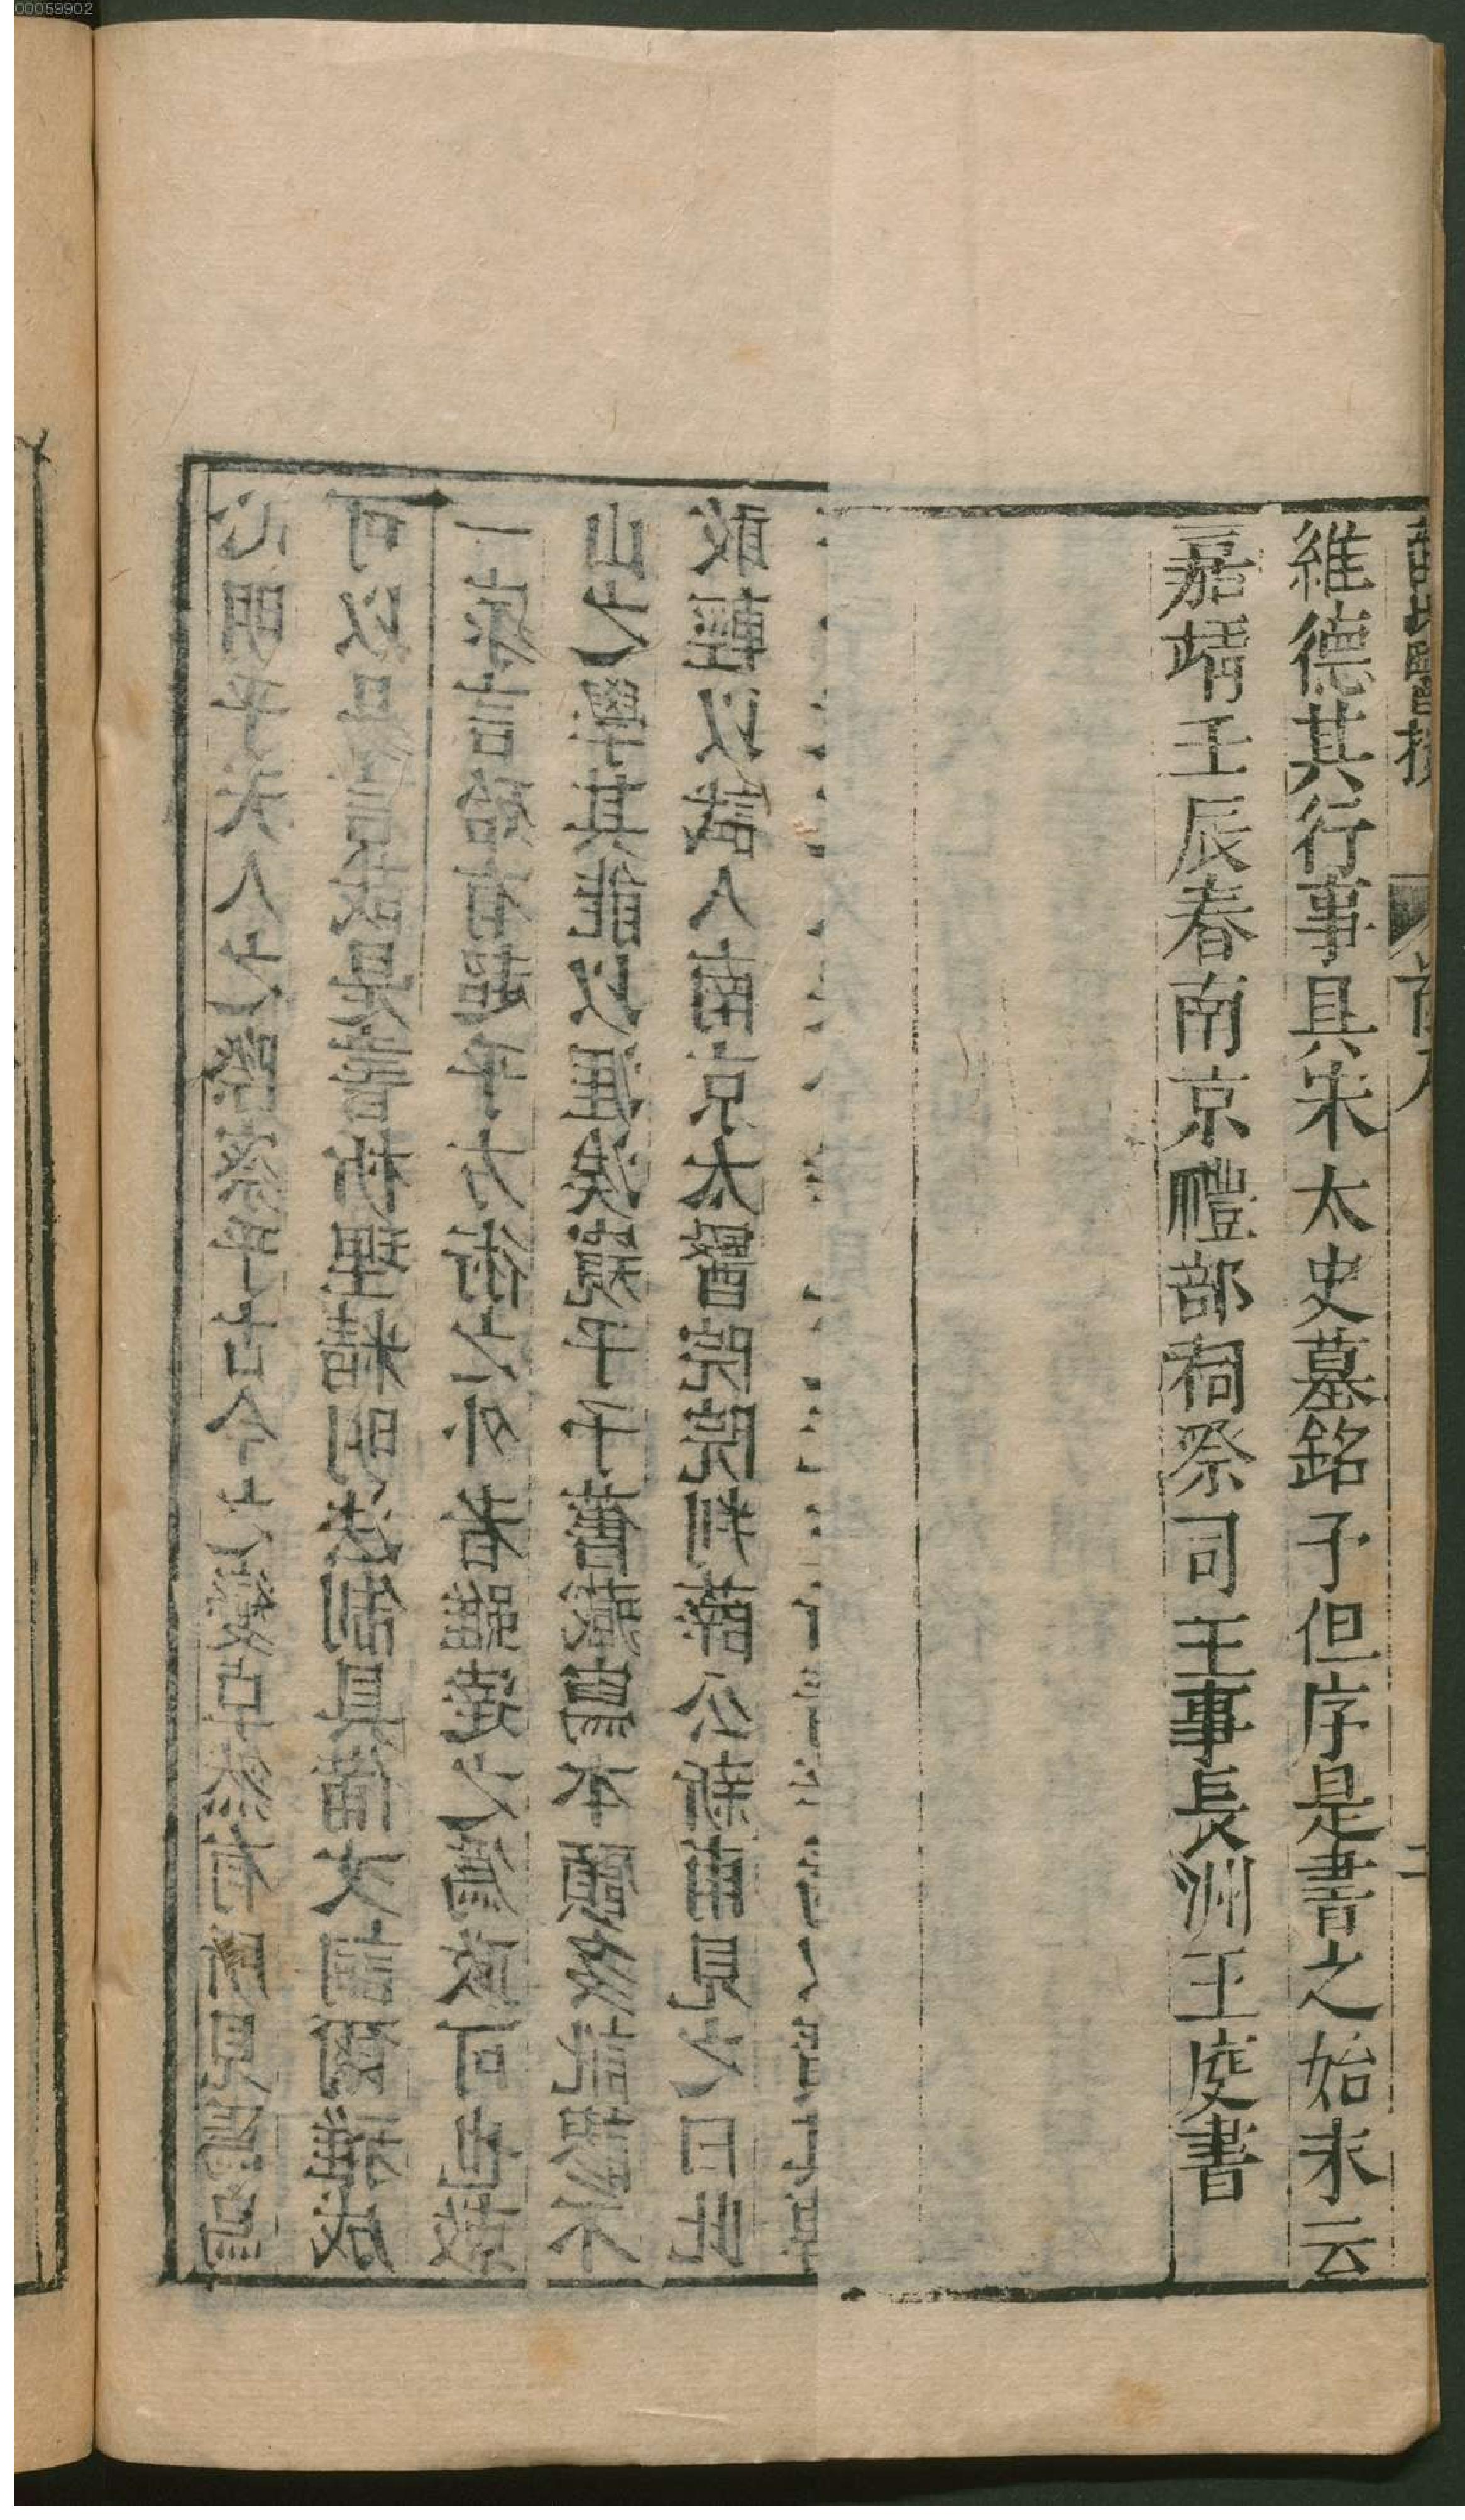 維德其行事具宋太史墓銘予但序是書之始末云
嘉靖壬辰春南京禮部祠祭司主事長洲王庭書
敢輕以試人南京太醫院院判薛公新甫見之曰此
山之學其能以涯涘窺乎予舊藏寫本顧多訛謬不
一家言殆有起乎方術之外者雖達之為政可也故
可以易言哉是書析理精明法制具備文詞爾雅成
心明乎天人之際察乎古今之變卓然有所見焉烏
00059902